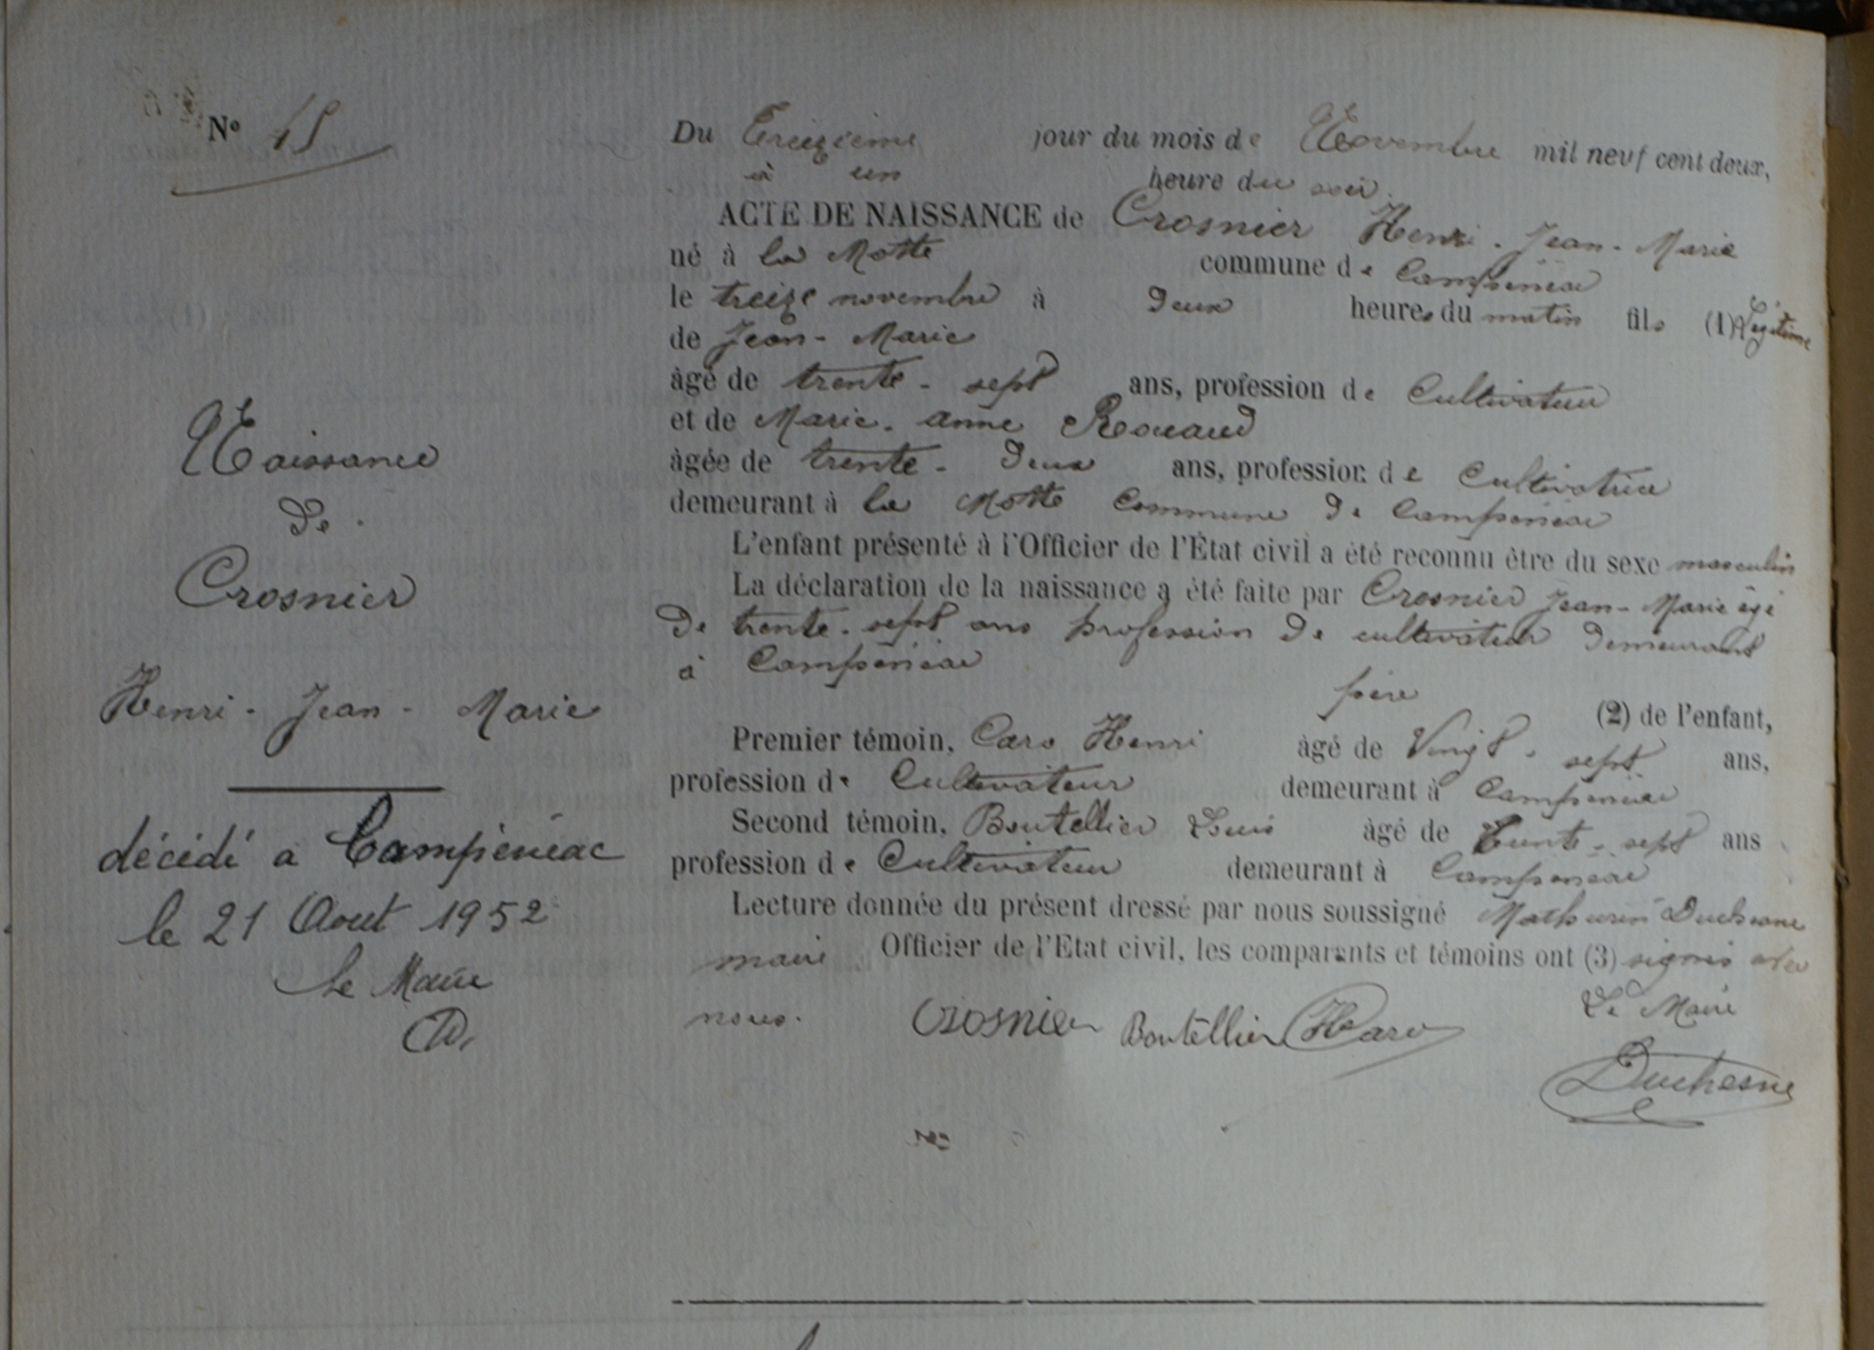 Nº 45
Naissance
de
Crosnier
Henri - Jean - Marie
décédé a Campénéac
le 21 Aout 1952
Le Maire
Du Treizième jour du mois de Novembre mil neuf cent deux,
à un heure du soir.
ACTE DE NAISSANCE de Crosnier Henri - Jean - Marie
né à la Motte commune de Campénéac
le treize novembre à deux heures du matin fils (1) Légitime
de Jean - Marie
âgé de trente - sept ans, profession de Cultivateur
et de Marie - anne Rouaud
âgée de trente - deux ans, profession de Cultivatrice
demeurant à la Motte Commune de Campénéac
L'enfant présenté à l'Officier de l'État civil a été reconnu être du sexe masculin
La déclaration de la naissance a été faite par Crosnier Jean - Marie âgé
de trente - sept ans profession de cultivateur demeurant
à Campénéac
père (2) de l'enfant,
Premier témoin, Caro Henri âgé de Vingt - sept ans,
profession de Cultivateur demeurant à Campénéac
Second témoin, Boutellier Louis âgé de trente - sept ans
profession de Cultivateur demeurant à Campénéac
Lecture donnée du présent dressé par nous soussigné Mathurin Duchesne
maire Officier de l'Etat civil, les comparants et témoins ont (3) signés avec
nous. Le Maire
Crosnier Boutellier HCaro
Duchesne